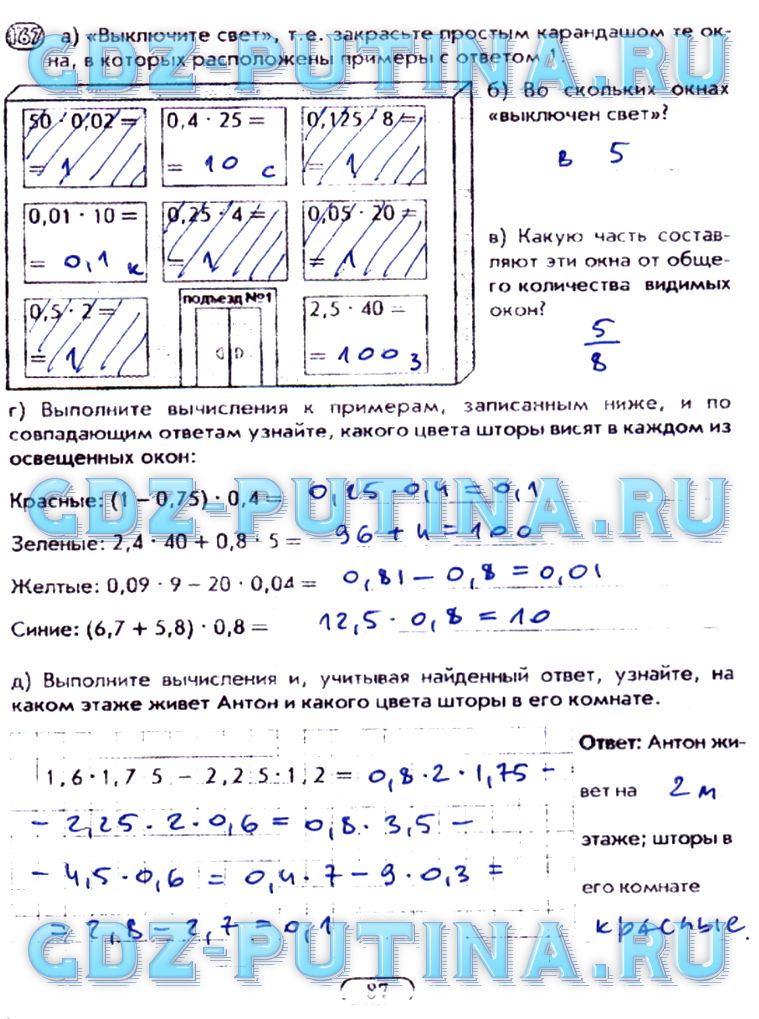 167 а) «Выключите свет», т.е. закрасьте простым карандашом те ок-
на, в которых расположены примеры с ответом 1.
50 · 0,02 =
= 1
0,4 · 25 =
= 10 с
0,125 · 8 =
= 1
0,01 · 10 =
= 0,1 к
0,25 · 4 =
= 1
0,05 · 20 =
= 1
0,5 · 2 =
= 1
подъезд №1
2,5 · 40 =
= 100 з
б) Во скольких окнах
«выключен свет»?
в 5
в) Какую часть состав-
ляют эти окна от обще-
го количества видимых
окон?
5
8
г) Выполните вычисления к примерам, записанным ниже, и по
совпадающим ответам узнайте, какого цвета шторы висят в каждом из
освещенных окон:
Красные: (1 – 0,75) · 0,4 = 0,25 · 0,4 = 0,1
Зеленые: 2,4 · 40 + 0,8 · 5 = 96 + 4 = 100
Желтые: 0,09 · 9 – 20 · 0,04 = 0,81 – 0,8 = 0,01
Синие: (6,7 + 5,8) · 0,8 = 12,5 · 0,8 = 10
д) Выполните вычисления и, учитывая найденный ответ, узнайте, на
каком этаже живет Антон и какого цвета шторы в его комнате.
1,6 · 1,7 5 – 2,2 5 · 1,2 = 0,8 · 2 · 1,75 –
– 2,25 · 2 · 0,6 = 0,8 · 3,5 –
– 4,5 · 0,6 = 0,4 · 7 – 9 · 0,3 =
= 2,8 – 2,7 = 0,1
Ответ: Антон жи-
вет на 2 м
этаже; шторы в
его комнате
красные.
87
GDZ-PUTINA.RU
GDZ-PUTINA.RU
GDZ-PUTINA.RU
GDZ-PUTINA.RU